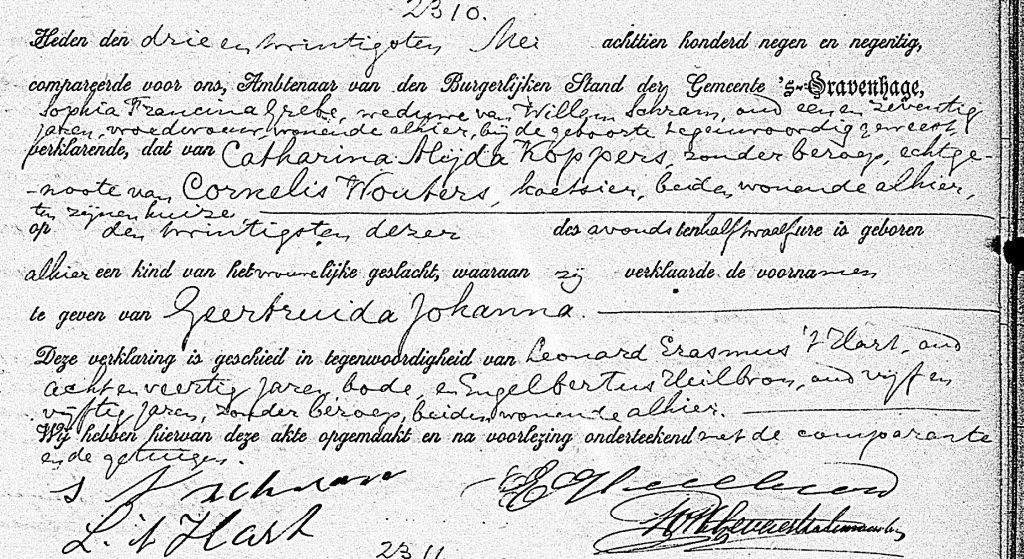 2310.
Heden den drie en twintigsten Mei achttien honderd negen en negentig,
compareerde voor ons, Ambtenaar van den Burgerlijken Stand der Gemeente 's-Gravenhage,
Sophia Francina Grebe, weduwe van Willem Schram, oud een en zeventig
jaren, vroedvrouw, wonende alhier, bij de geboorte tegenwoordig geweest
verklarende, dat van Catharina Alijda Koppers, zonder beroep, echtge-
-noote van Cornelis Wouters, koetsier, beiden wonende alhier,
ten zijnen huize
op den twintigsten dezer des avonds ten half twaalf ure is geboren
alhier een kind van het vrouwelijke geslacht, waaraan zij verklaarde de voornamen
te geven van Geertruida Johanna.
Deze verklaring is geschied in tegenwoordigheid van Leonard Erasmus 't Hart, oud
acht en veertig jaren, bode, en Engelbertus Heilbron, oud vijf en
vijftig jaren, zonder beroep, beiden wonende alhier.
Wij hebben hiervan deze akte opgemaakt en na voorlezing onderteekend met de comparante
en de getuigen.
L. 't Hart
2311